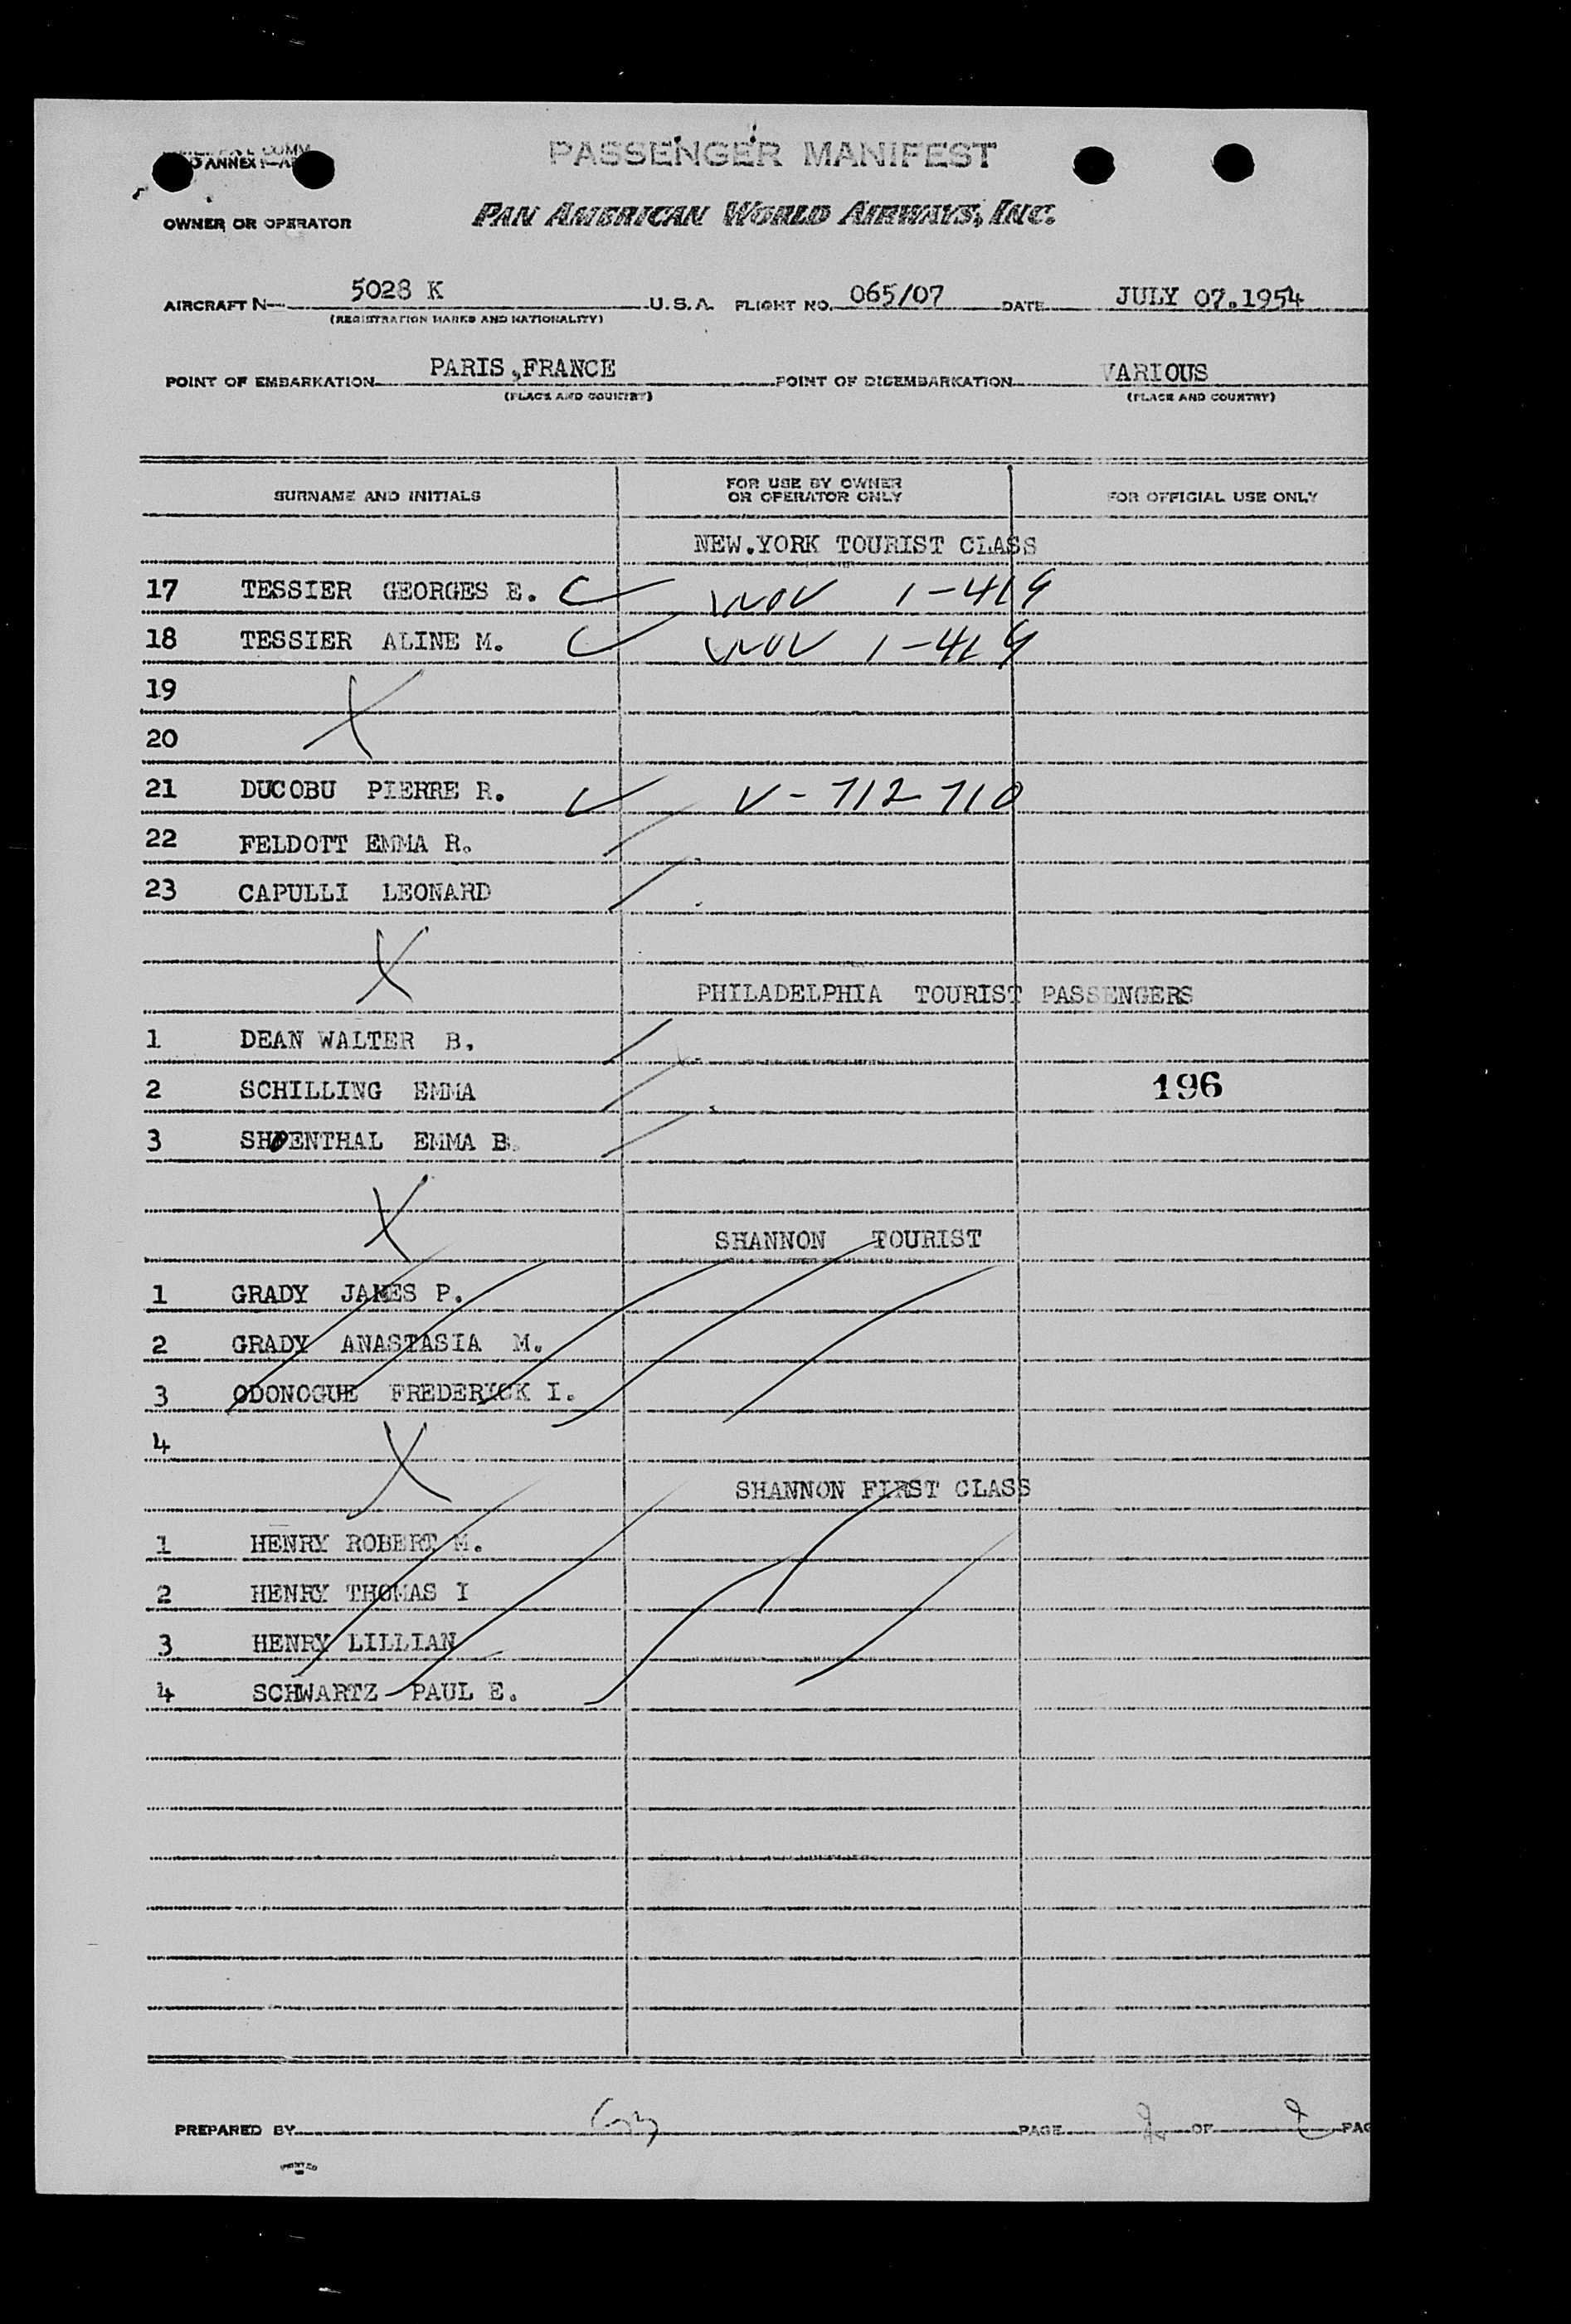 ANNEX
PASSENGER MANIFEST
OWNER OR OPERATOR PAN AMERICAN WORLD AIRWAYS, INC.
AIRCRAFT N— 5028 K U.S.A. FLIGHT NO. 065/07 DATE JULY 07.1954
(REGISTRATION MARKS AND NATIONALITY)
POINT OF EMBARKATION PARIS,FRANCE POINT OF DISEMBARKATION VARIOUS
(PLACE AND COUNTRY) (PLACE AND COUNTRY)
SURNAME AND INITIALS FOR USE BY OWNER OR OPERATOR ONLY FOR OFFICIAL USE ONLY
NEW.YORK TOURIST CLASS
17 TESSIER GEORGES E. 1-419
18 TESSIER ALINE M. 1-419
19
20
21 DUCOBU PIERRE R. V-712710
22 FELDOTT EMMA R.
23 CAPULLI LEONARD
PHILADELPHIA TOURIST PASSENGERS
1 DEAN WALTER B.
2 SCHILLING EMMA 196
3 EMMA B.
SHANNON TOURIST
1 GRADY JAMES P.
2 GRADY ANASTASIA M.
3 ODONOGUE FREDERICK I.
4
SHANNON FIRST CLASS
1 HENRY ROBERT M.
2 HENRY THOMAS I
3 HENRY LILLIAN
4 SCHWARTZ PAUL E.
PREPARED BY PAGE 2 OF 2 PAG
PRINTED